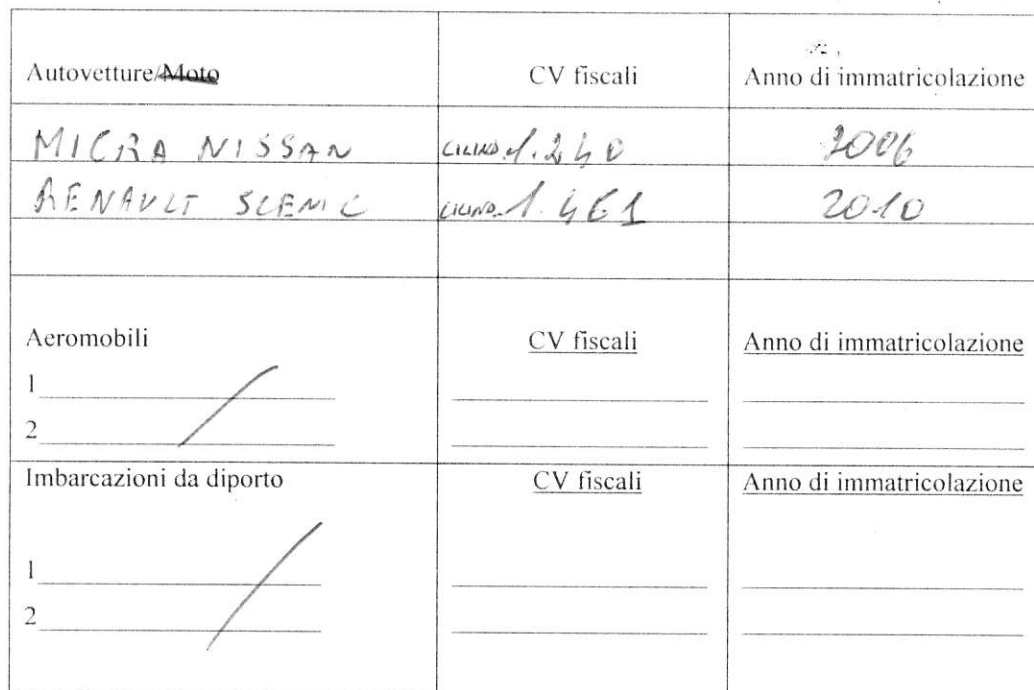 Autovetture/Moto CV fiscali Anno di immatricolazione
MICRA NISSAN CILIND. 1.240 2006
RENAULT SCENIC CILIND. 1.461 2010
Aeromobili CV fiscali Anno di immatricolazione
1
2
Imbarcazioni da diporto CV fiscali Anno di immatricolazione
1
2